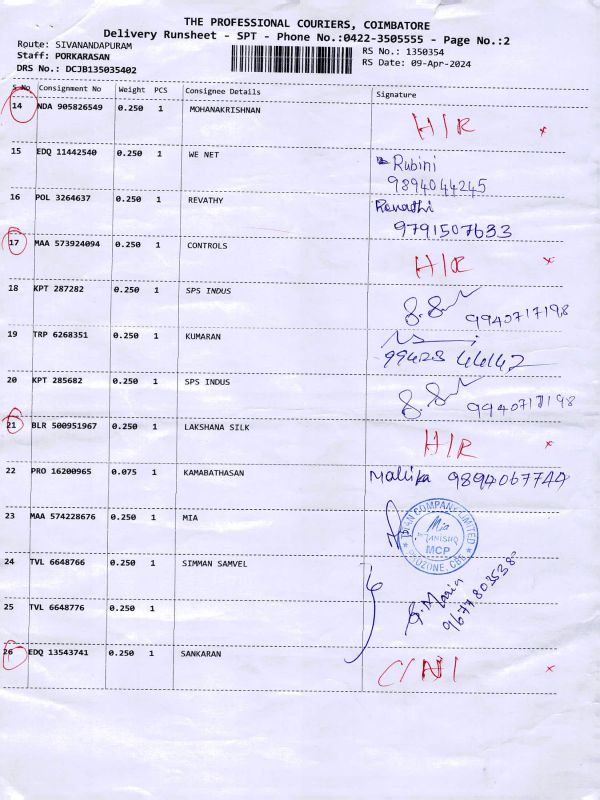 THE PROFESSIONAL COURIERS, COIMBATORE
Delivery Runsheet - SPT - Phone No.:0422-3505555 - Page No.:2
Route: SIVANANDAPURAM
RS No.: 1350354
Staff: PORKARASAN
RS Date: 09-Apr-2024
DRS No.: DCJB135035402
S.No Consignment No Weight PCS Consignee Details Signature
14 NDA 905826549 0.250 1 MOHANAKRISHNAN H/R x
15 EDQ 11442540 0.250 1 WE NET Rubini
9894044245
16 POL 3264637 0.250 1 REVATHY Revathi
9791507633
17 MAA 573924094 0.250 1 CONTROLS H/R x
18 KPT 287282 0.250 1 SPS INDUS 9940717198
19 TRP 6268351 0.250 1 KUMARAN
99423 44142
20 KPT 285682 0.250 1 SPS INDUS 9940717198
21 BLR 500951967 0.250 1 LAKSHANA SILK H/R x
22 PRO 16200965 0.075 1 KAMABATHASAN Mallika 9894067744
23 MAA 574228676 0.250 1 MIA
TITAN COMPANY LIMITED
Mia
TANISHQ
MCP
PROZONE, CBE
24 TVL 6648766 0.250 1 SIMMAN SAMVEL
25 TVL 6648776 0.250 1
G. Maria
9677803538
26 EDQ 13543741 0.250 1 SANKARAN C/N1 x